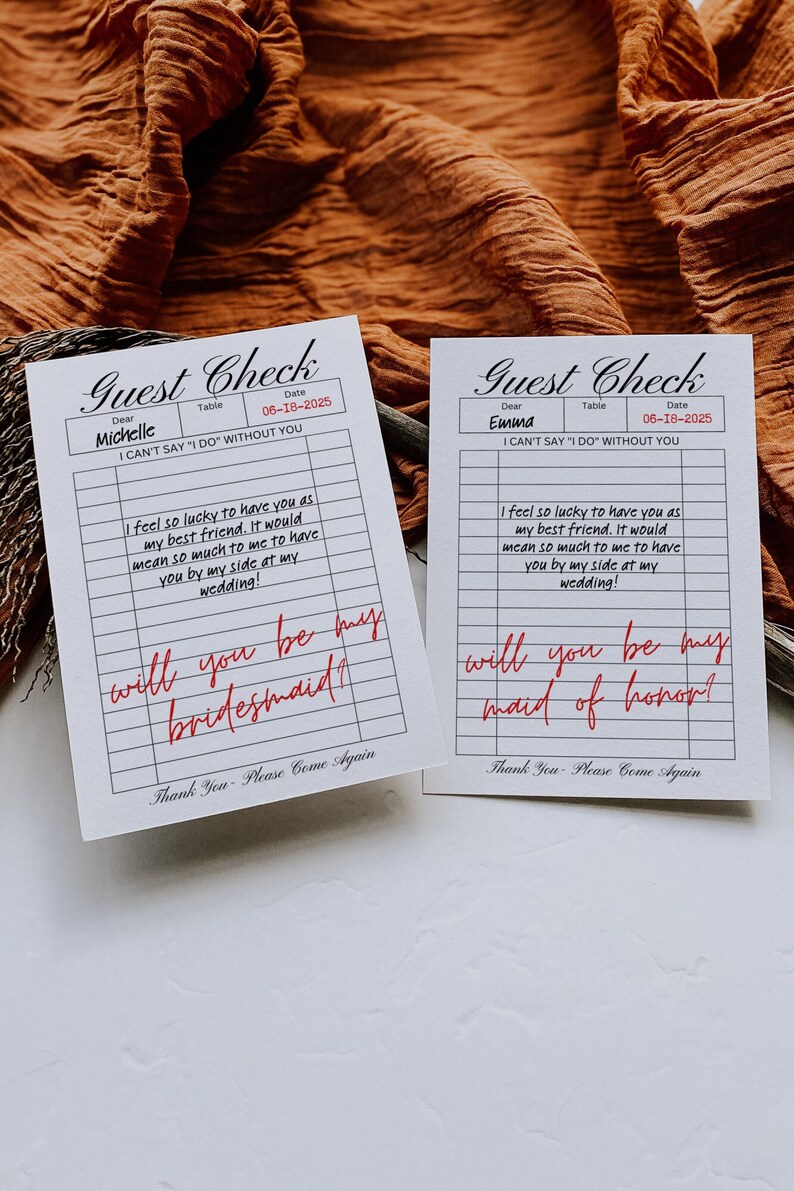 Guest Check
Dear Table Date
Michelle 06-18-2025
I CAN'T SAY "I DO" WITHOUT YOU
I feel so lucky to have you as
my best friend. It would
mean so much to me to have
you by my side at my
wedding!
will you be my
bridesmaid?
Thank You- Please Come Again
Guest Check
Dear Table Date
Emma 06-18-2025
I CAN'T SAY "I DO" WITHOUT YOU
I feel so lucky to have you as
my best friend. It would
mean so much to me to have
you by my side at my
wedding!
will you be my
maid of honor?
Thank You- Please Come Again